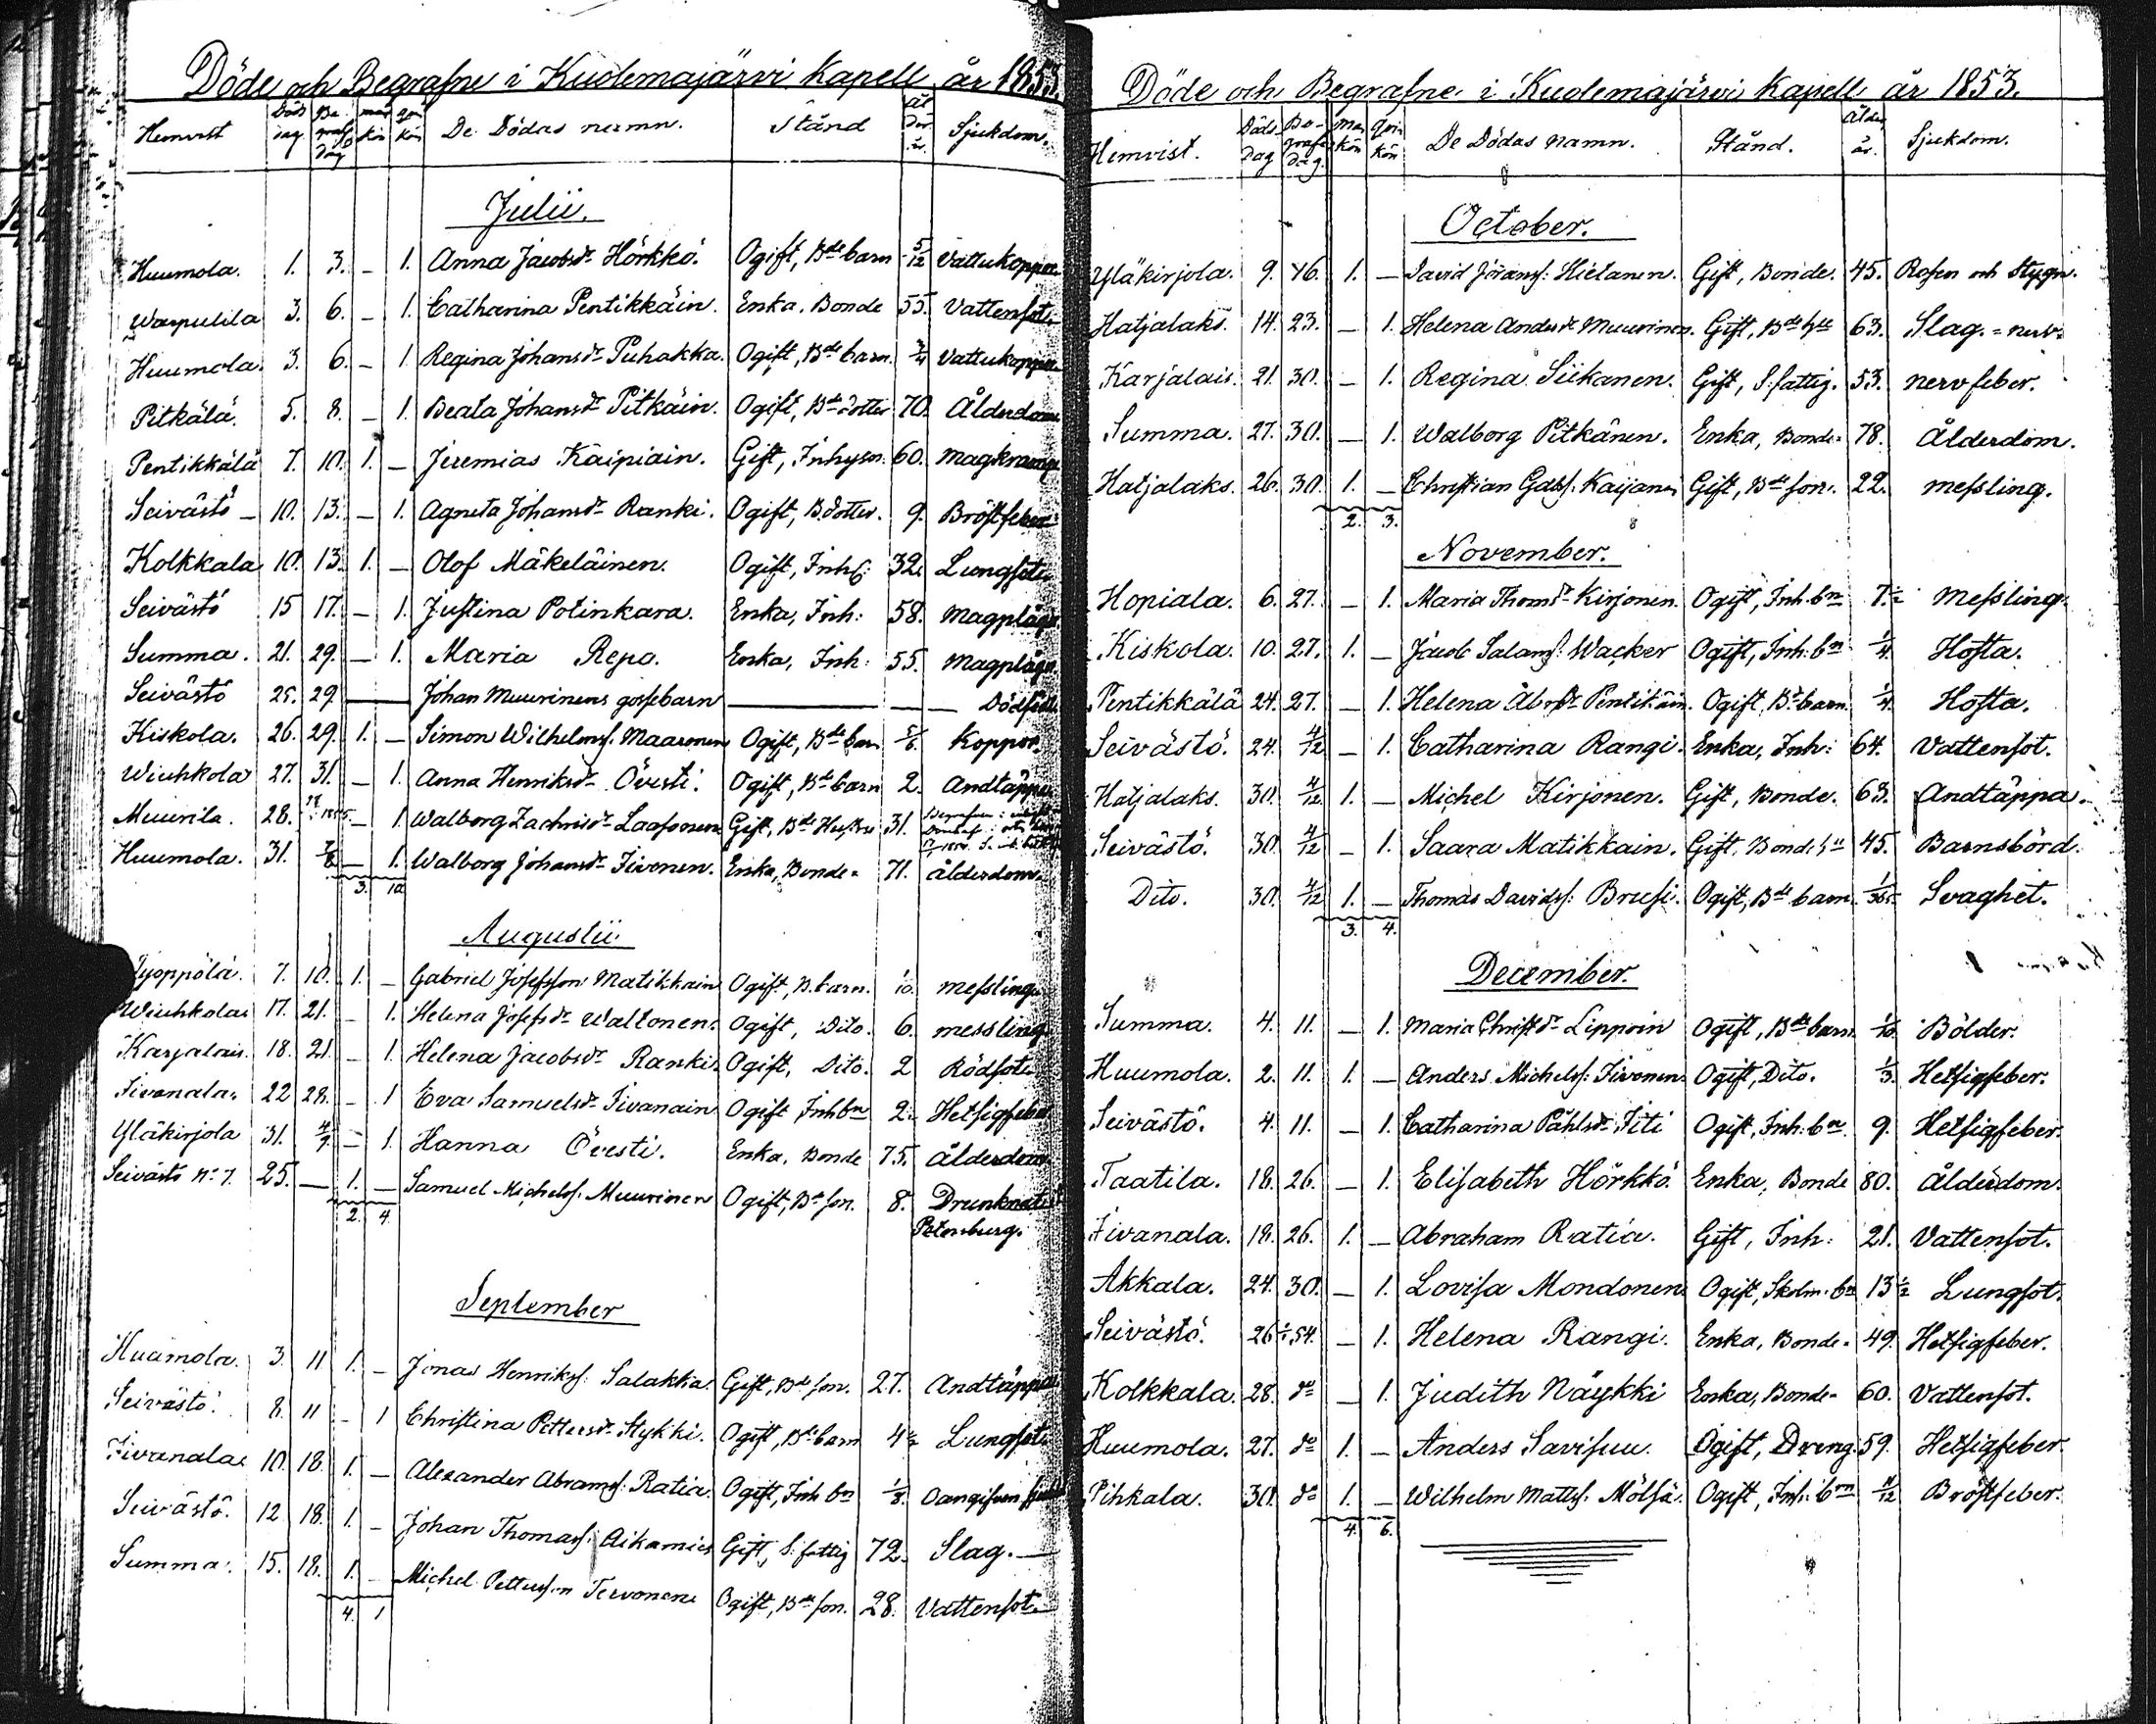 Döde och Begrafne i Kuolemajärvi Kapell år 1853.
Hemvist Döds dag Be graf. dag man kön qvin kön De Dödas namn. Stånd Ål der år. Sjukdom.
Julii.
Huumola. 1. 3. – 1. Anna Jacobsdr Hörkkö. Ogift, Bde barn 5/12 Vattukoppor
Warpulila 3. 6. – 1. Catharina Pentikkäin. Enka. Bonde 55. Vattensot.
Huumola. 3. 6. – 1 Regina Johansdr Puhakka. Ogift, Bde barn. 3/4 Vattukoppor
Pitkälä. 5. 8. – 1. Beata Johansdr Pitkäin. Ogift, Bde dotter 70. Ålderdom
Pentikkälä 7. 10. 1. – Jeremias Kaipiain. Gift, Inhyses. 60. Magkramp
Seivästö – 10. 13. – 1. Agneta Johansdr Ranki. Ogift, B. dotter. 9. Bröstfeber
Kolkkala 10. 13. 1. – Olof Mäkeläinen. Ogift, Inh: 32. Lungsot.
Seivästö 15 17. – 1. Justina Potinkara. Enka, Inh: 58. Magplåga
Summa. 21. 29. – 1. Maria Repo. Enka, Inh: 55. Magplåga
Seivästö 25. 29 — Johan Muurinens gossebarn — — Dödfödt.
Kiskola. 26. 29. 1. – Simon Wilhelmss. Maaronen Ogift, Bde barn 5/6. Koppor.
Wiuhkola 27. 31. – 1. Anna Henriksdr Övesti. Ogift, Bde barn 2. Andtäppa
Muurila. 28. – 1. Walborg Zachrisdr Laaßonen Gift, Bde Hustru 31.
Huumola. 31. 7/8 – 1. Walborg Johansdr Iivonen. Enka, Bonde- 71. Ålderdom.
3. 10
Augustii
Kyöppölä. 7. 10. 1. – Gabriel Josefsson Matikkain Ogift, B. barn. 1/10. messling.
Wiuhkola 17. 21. – 1. Helena Josefsdr Waltonen. Ogift, Dito. 6. messling
Karjalais. 18. 21 – 1. Helena Jacobsdr Ranki Ogift, Dito. 2 Rödsot.
Iivanala. 22 28. – 1 Eva Samuelsdr Iivanain Ogift Inh bn 2. Hetsigfeber
Yläkirjola 31. 4/9 – 1. Hanna Övesti. Enka, Bonde 75. Ålderdom
Seivästö No 7. 25. — 1. – Samuel Michelss. Muurinen Ogift, Bde son. 8. Drunknat i
2. 4. Petersburg.
September
Huumola. 3. 11 1. – Jonas Henrikss. Salakka. Gift, Bde son. 27. Andtäppa
Seivästö. 8. 11 – 1 Christina Pettersdr Stykki. Ogift, Bde barn 4½ Lungsot.
Iivanala. 10. 18. 1. – Alexander Abramss. Ratia. Ogift, Inh bn 1/8. Oangifven sjukd
Seivästö. 12 18. 1. – Johan Thomass. Aikamies Gift, S. fattig 72. Slag. —
Summa. 15. 18. 1. – Michel Pettersson Tervonen Ogift, Bde son. 28. Vattensot.
4. 1
Döde och Begrafne i Kuolemajärvi Kapell år 1853.
Hemvist. Döds Dag Be- grafn dag. Man kön Qvin kön De Dödas namn. Stånd. Ålder, år. Sjukdom.
October.
Yläkirjola. 9. 16. 1. – David Jöranss: Hietanen. Gift, Bonde. 45. Rosen och Stygn.
Hatjalaks. 14. 23. – 1. Helena Andersdr Muurinen. Gift, Bde hu 63. Slag. = nerv.
Karjalais. 21. 30. – 1. Regina Siikanen. Gift, S. fattig. 53. nervfeber.
Summa. 27. 30. – 1. Walborg Pitkänen. Enka, Bonde- 78. Ålderdom.
Hatjalaks. 26. 30. 1. – Christian Gabss. Kaijanen Gift, Bde son. 22. messling.
2. 3.
November.
Hopiala. 6. 27. – 1. Maria Thomsdr Kirjonen. Ogift, Inh. bn 7.½ Messling.
Kiskola. 10. 27. 1. – Jacob Salamss. Wacker Ogift, Inh: bn 1/4. Hosta.
Pentikkälä 24. 27. – 1. Helena Abrsdr Pentikäin. Ogift, Bde barn 1/4. Hosta.
Seivästö. 24. 4/12 – 1. Catharina Rangi. Enka, Inh: 64. Vattensot.
Hatjalaks. 30. 4/12 1. – Michel Kirjonen. Gift, Bonde. 63. Andtäppa.
Seivästö. 30. 4/12 – 1. Saara Matikkain. Gift, Bonde hu 45. Barnsbörd.
Dito. 30. 4/12 1. – Thomas Davidss: Bruesi. Ogift, Bde barn 1/365. Svaghet.
3. 4.
December.
Summa. 4. 11. – 1. Maria Christdr Lippoin Ogift, Bde barn 1/10. Bölder.
Huumola. 2. 11. 1. – Anders Michelss: Iivonen. Ogift, Dito. 1/3. Hetsigfeber.
Seivästö. 4. 11. – 1. Catharina Påhlsdr Iiti Ogift, Inh: bn. 9. Hetsigfeber.
Taatila. 18. 26. – 1. Elisabeth Hörkkö. Enka, Bonde 80. Ålderdom.
Iivanala. 18. 26. 1. – Abraham Ratia. Gift, Inh: 21. Vattensot.
Akkala. 24. 30. – 1. Lovisa Mondonen Ogift, Skolm. bn 13½ Lungsot.
Seivästö. 26 1/1 54. – 1. Helena Rangi. Enka, Bonde- 49. Hetsigfeber.
Kolkkala. 28. do – 1. Judith Näykki Enka, Bonde- 60. Vattensot.
Huumola. 27. do 1. – Anders Savisuu. Ogift, Dreng 59. Hetsigfeber.
Pihkala. 30. do 1. – Wilhelm Mattss. Mölsä. Ogift, Inh: bn 4/12 Bröstfeber.
4. 6.